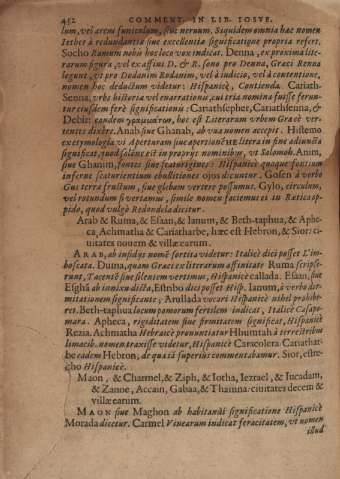 452 COMMENT. IN LIB. IOSVE.
lum, vel arcus funiculum, siue neruum. Siquidem omnia hæc nomen
Iether à redundantia siue excellentia significatione propria refert.
Socho Ramum nobis hoc loco vox indicat. Denna, ex proxima lite-
rarum figura, vel ex affini D. & R. sono pro Denna, Græci Renna
legunt, vt pro Dodanim Rodanim, vel à iudicio, vel à contentione,
nomen hoc deductum videtur: Hispanicè, Contienda. Cariath-
Senna, vrbs historia vel enarrationis, cui tria nomina fuisse ferun-
tur eiusdem ferè significationis: Cariathsepher, Cariathsenna, &
Debir: eandem γραμμάτων, hoc est Literarum vrbem Græcè ver-
tentes dixêre. Anab siue Ghanab, ab vua nomen accepit. Histemo
ex etymologia vi Aperturam siue apertionem litera in fine adiuncta
significat, quod solenne est in proprijs nominibus, vt Salomoh. Anim,
siue Ghanim, fontes siue scaturigines: Hispanicè quoque fontium
inferne scaturientium ebullitiones ojos dicuntur. Gosen à verbo
Gus terra fructum, siue glebam vertere possumus. Gylo, circulum,
vel rotundum si vertamus, simile nomen faciemus ei in Ricticop-
pido, quod vulgò Redondela dicitur.
Arab & Ruma, & Esaan, & Ianum, & Beth-taphua, & Aphe-
ca, Achmatha & Cariatharbe, hæc est Hebron, & Sior: ci-
uitates nouem & villæ earum.
ARAB, ab insidijs nomē sortita videtur: Italicè dici posset L'im-
boscata. Duma, quam Græci ex literarum affinitate Ruma scripse-
runt, Tacentē siue silentem vertimus, Hispanicè callada. Esaan, siue
Esghā ab innixu dicta, Estribo dici posset Hisp. Ianum, à verbo dor-
mitationem significante, Arullada vocari Hispanicè nihil prohibe-
ret. Beth-taphua locum pomorum fertilem indicat, Italicè Casapo-
mara. Apheca, rigiditatem siue firmitatem significat, Hispanicè
Rezia. Achmatha Hebraicè pronuntiatur Hhumtah à terrestribus
limacib. nomen traxisse videtur, Hispanicè Caracolera. Cariathar-
be eadem Hebron, de qua iā superiùs commentabamur. Sior, estre-
cho Hispanicè.
Maon, & Charmel, & Ziph, & Iotha, Iezrael, & Iucadam,
& Zanoe, Accain, Gabaa, & Thamna: ciuitates decem &
villæ earum.
MAON siue Maghon ab habitandi significatione Hispanicè
Morada dicetur. Carmel Vinearum indicat feracitatem, vt nomen
illud